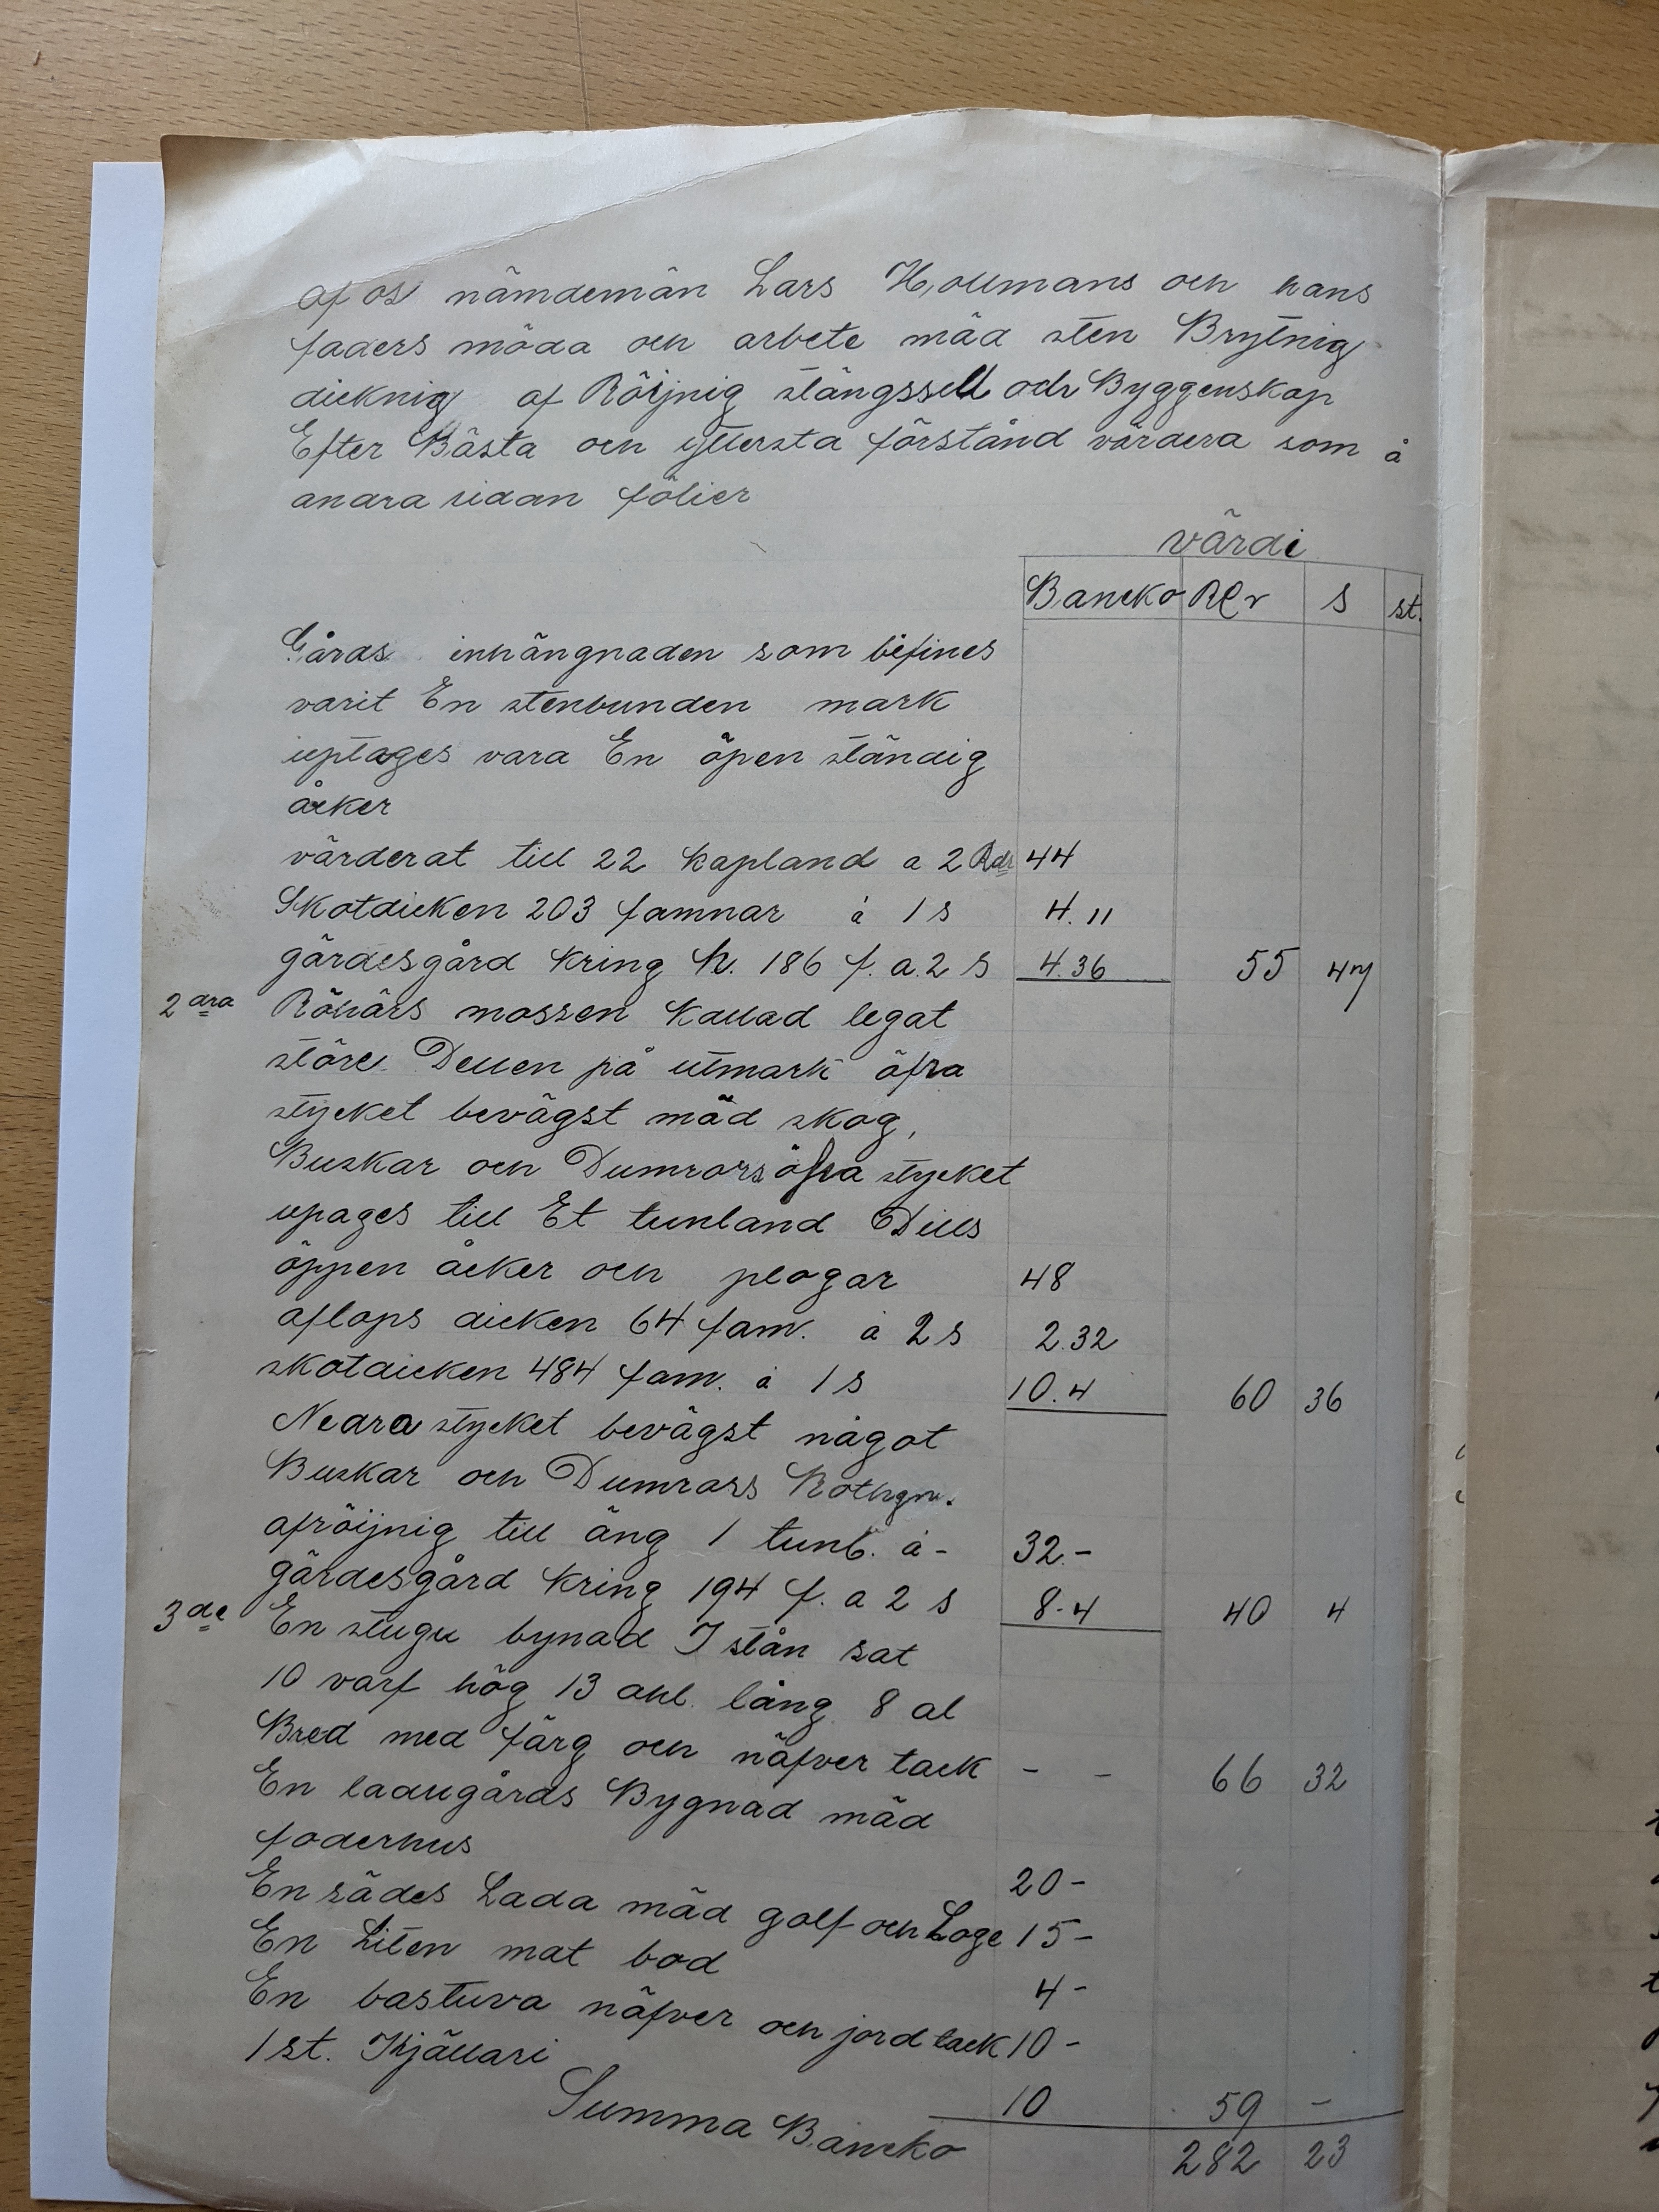 af os nämdemän Lars Hollmans och hans
faders möda och arbete mäd sten Brytnig
dicknig af Röijnig stängssell och Byggenskap
Efter Bästa och yttersta förstånd värdera som å
andra sidan fölier
värdi
Bancko Rdr s st.
Gårds inhängnaden som befines
varit En stenbunden mark
uptages vara En öpen ständig
åcker
värderat till 22 kapland a 2 Rdr 44
Skotdicken 203 famnar à 1 s 4.11
gärdesgård kring h. 186 f. a. 2 s 4.36 55 47
2dra Röhärs mossen kallad legat
störe Dellen på utmark öfra
stycket bevägst mäd skog,
Buskar och Dumrors öfra stycket
upages till Et tunland Dills
öppen åcker och plogar 48
aflops dicken 64 fam. à 2 s 2.32
skotdicken 484 fam. à 1 s 10.4 60 36
Nedra stycket bevägst något
Buskar och Dumrors
afröijnig till äng 1 tunl. à - 32.-
gärdesgård kring 194 f. a 2 s 8-4 40 4
3de En stugu bynad I stån sat
10 varf hög 13 ahl. lång 8 al
Bred med färg och näfver tack - - 66 32
En ladugårds Bygnad mäd
foderhus 20-
En sädes Lada mäd golf och Loge 15-
En Liten mat bod 4-
En bastuva näfver och jord tack 10-
1 st. Kjällari 10 59 -
Summa Bancko 282 23